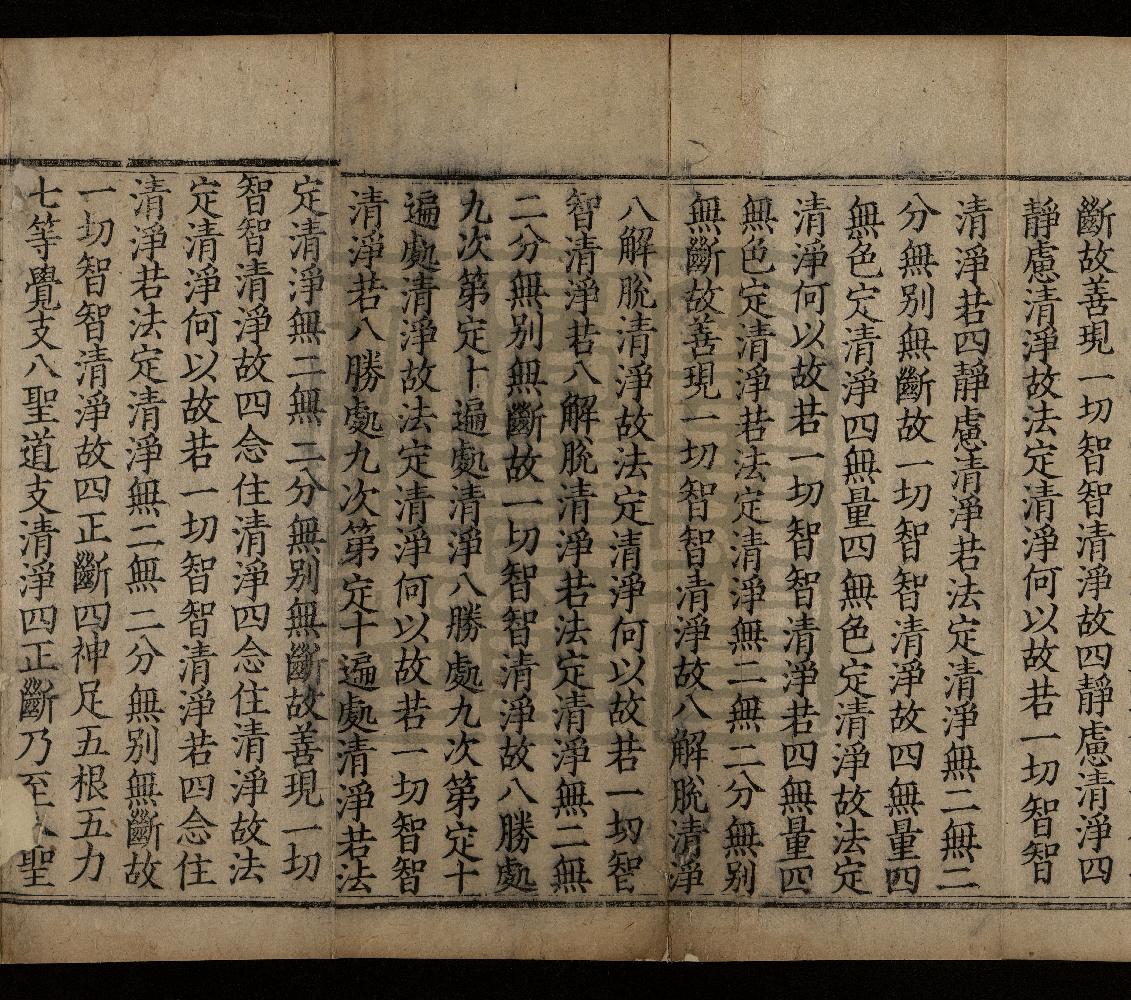 斷故善現一切智智清淨故四靜慮清淨四
靜慮清淨故法定清淨何以故若一切智智
清淨若四靜慮清淨若法定清淨無二無二
分無别無斷故一切智智清淨故四無量四
無色定清淨四無量四無色定清淨故法定
清淨何以故若一切智智清淨若四無量四
無色定清淨若法定清淨無二無二分無别
無斷故善現一切智智清淨故八解脫清淨
八解脫清淨故法定清淨何以故若一切智
智清淨若八解脫清淨若法定清淨無二無
二分無别無斷故一切智智清淨故八勝處
九次第定十遍處清淨八勝處九次第定十
遍處清淨故法定清淨何以故若一切智智
清淨若八勝處九次第定十遍處清淨若法
定清淨無二無二分無别無斷故善現一切
智智清淨故四念住清淨四念住清淨故法
定清淨何以故若一切智智清淨若四念住
清淨若法定清淨無二無二分無别無斷故
一切智智清淨故四正斷四神足五根五力
七等覺支八聖道支清淨四正斷乃至八聖